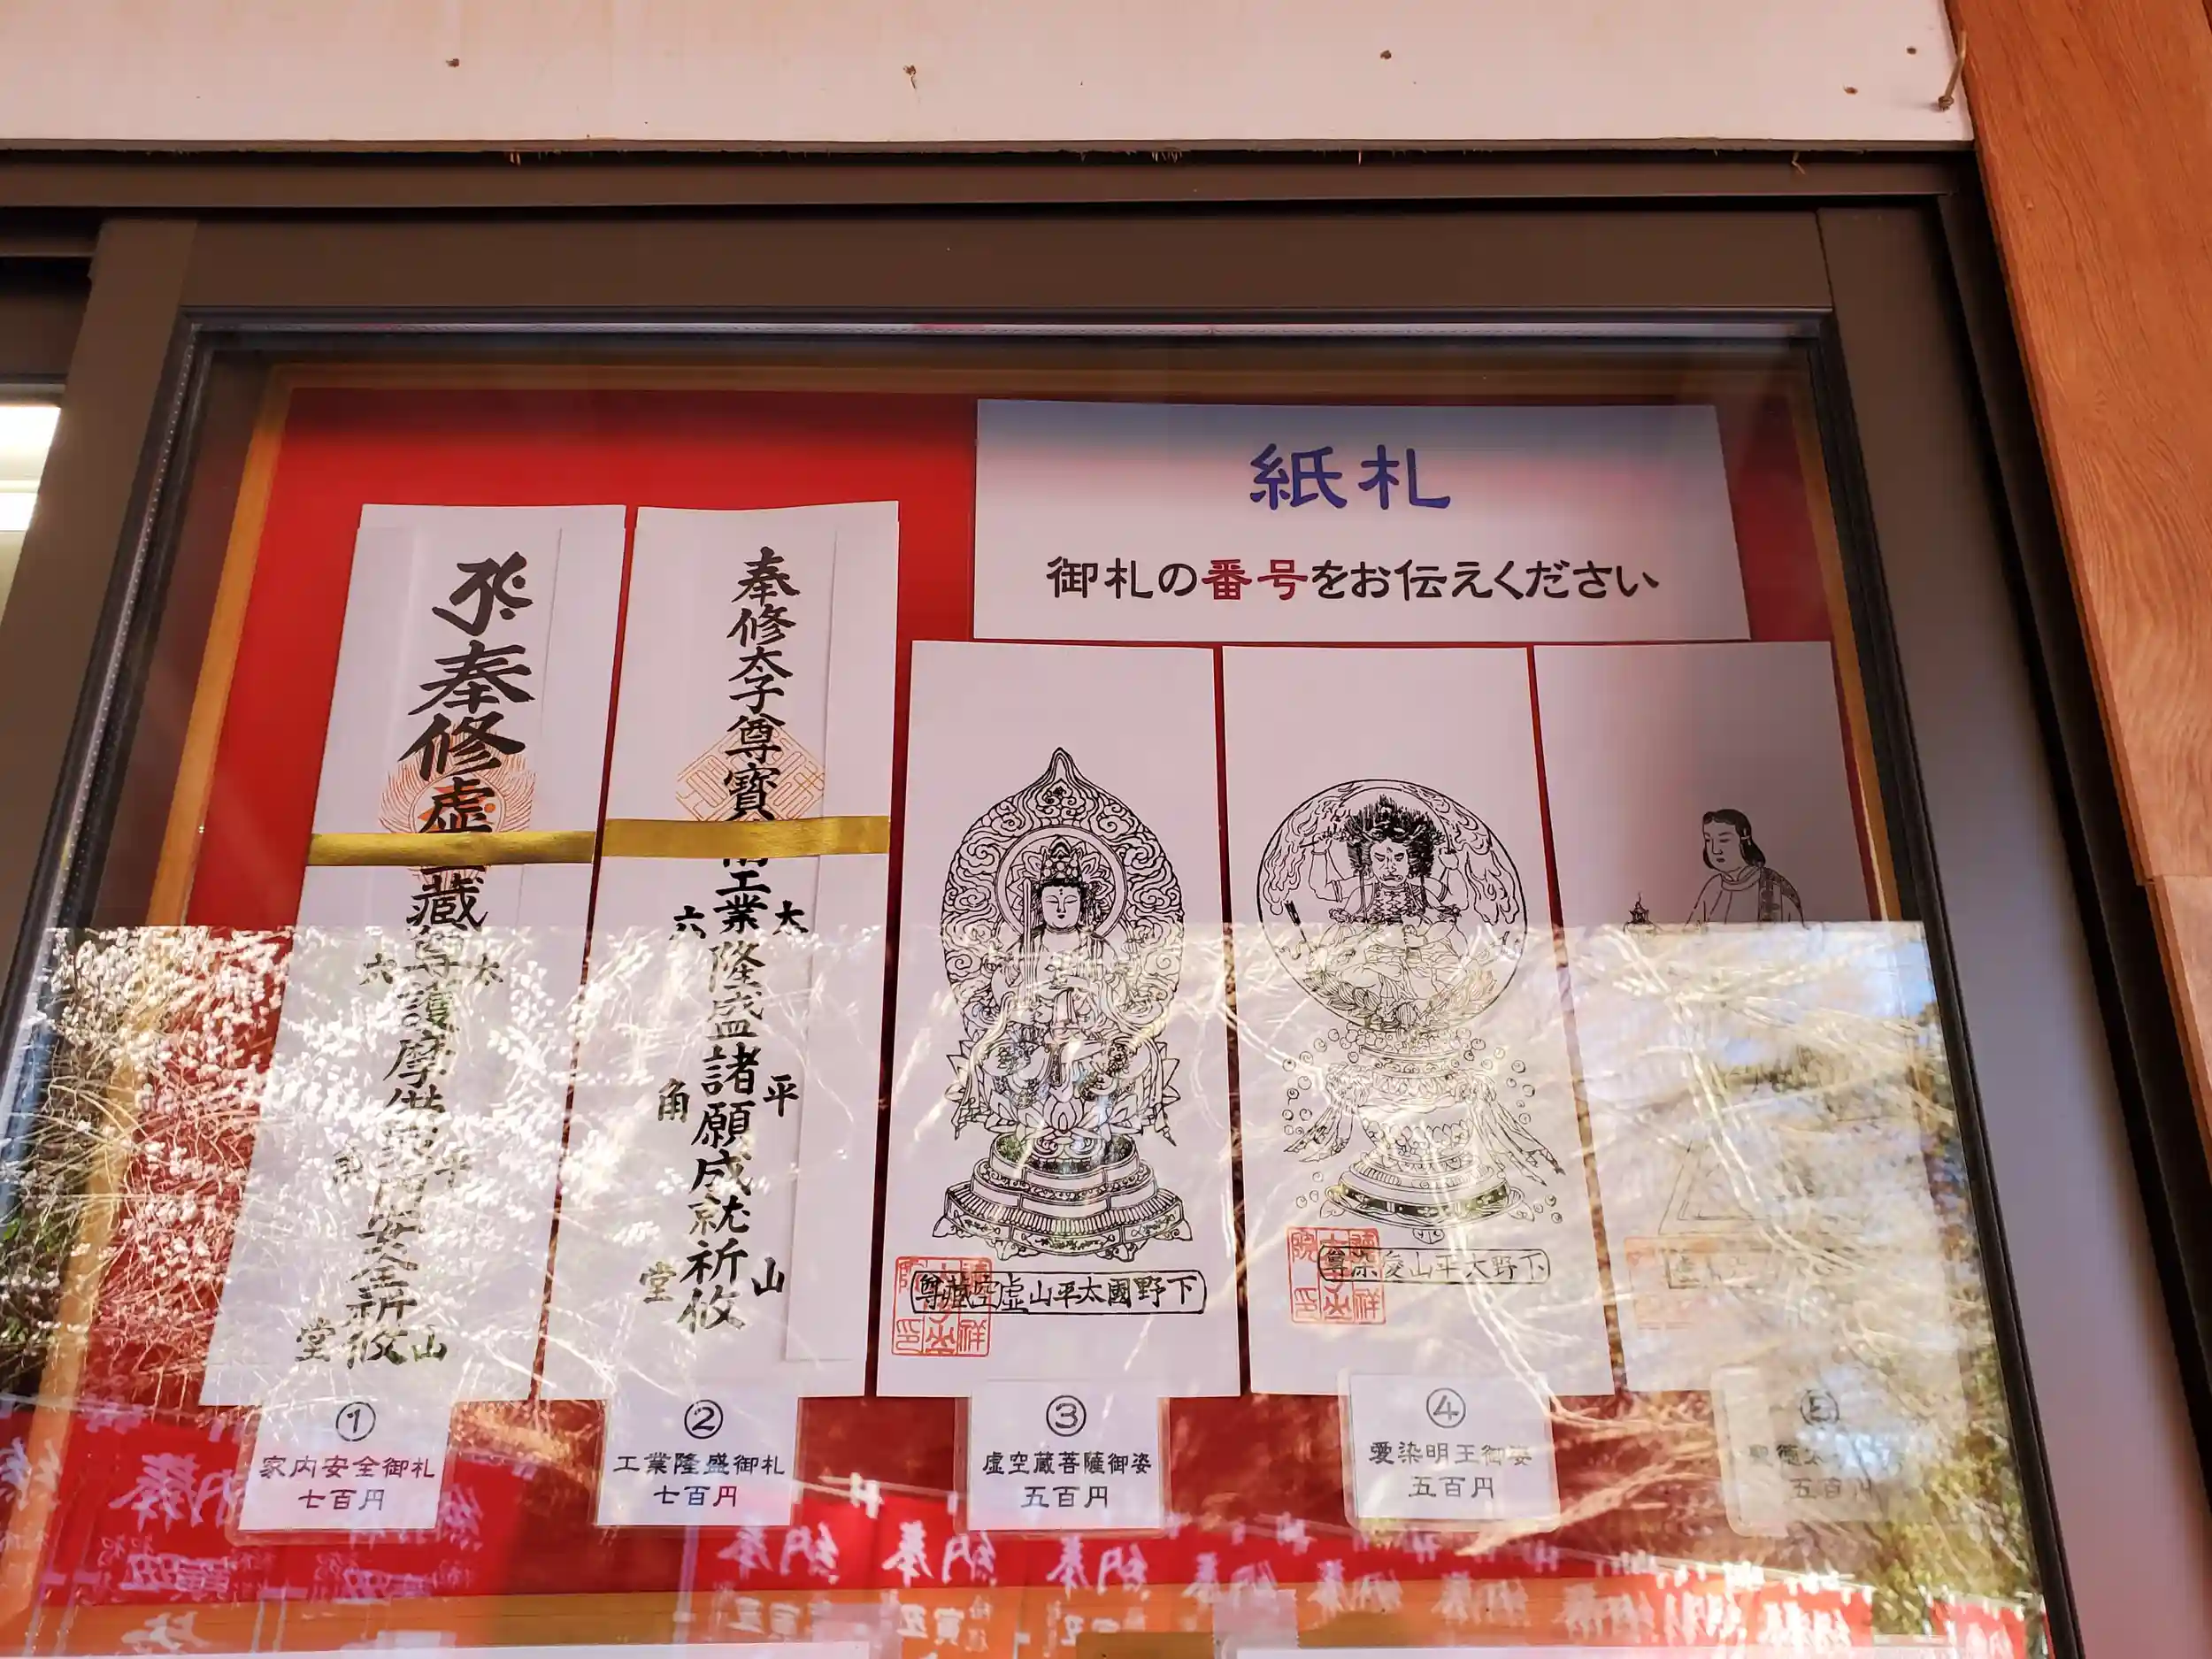 紙札
御札の番号をお伝えください
奉修虚
藏尊護摩供
安全祈攸
太平山
六角堂
奉修太子尊寳
工業隆盛諸願成就祈攸
太平山
六角堂
下野國太平山虚空藏尊
下野太平山愛染尊
①
家内安全御札
七百円
②
工業隆盛御札
七百円
③
虚空蔵菩薩御姿
五百円
④
愛染明王御姿
五百円
⑤
五百円